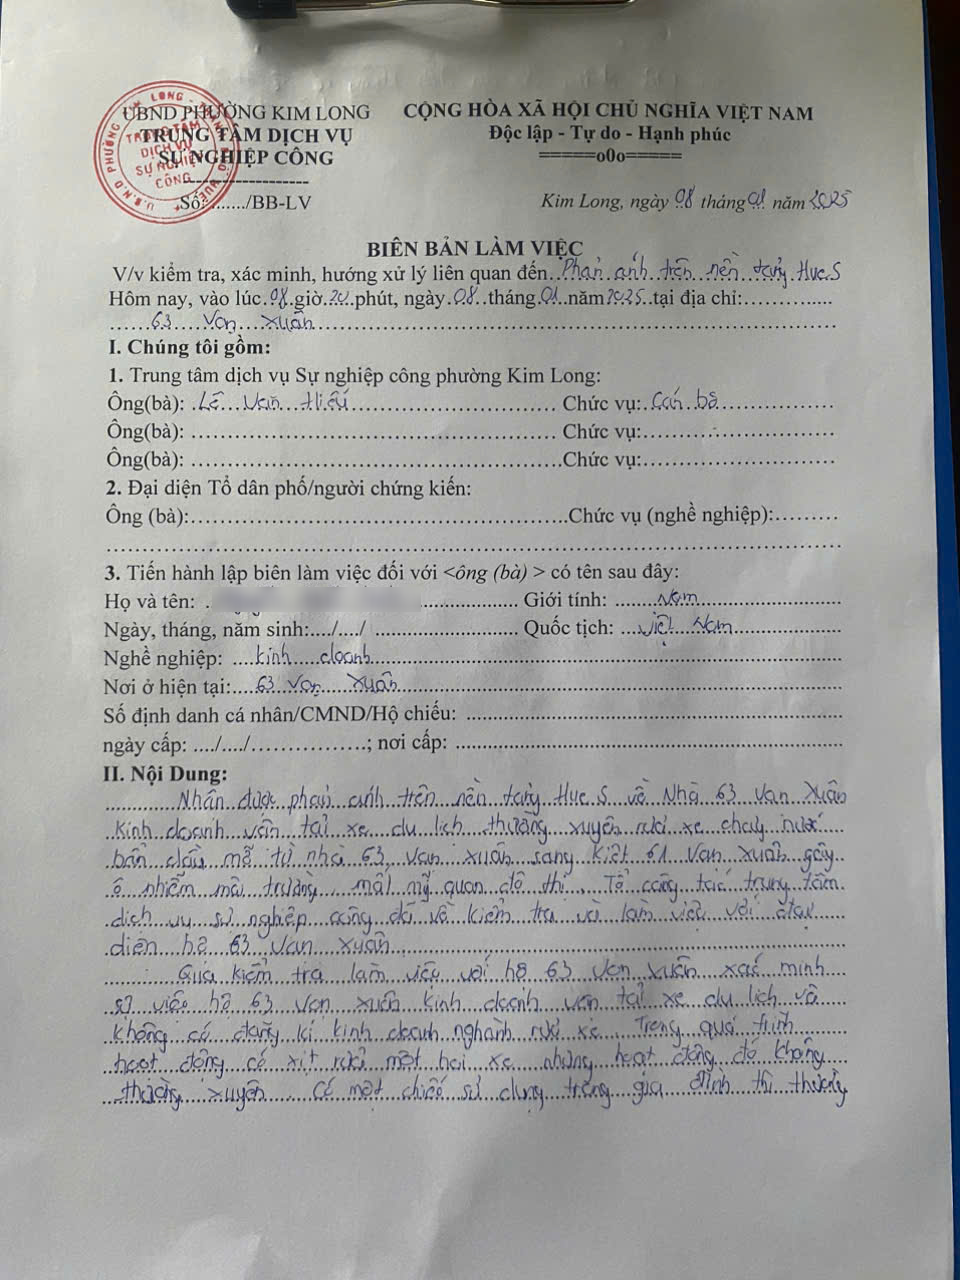 UBND PHƯỜNG KIM LONG
TRUNG TÂM DỊCH VỤ
SỰ NGHIỆP CÔNG
Số:......../BB-LV
CỘNG HÒA XÃ HỘI CHỦ NGHĨA VIỆT NAM
Độc lập - Tự do - Hạnh phúc
=====o0o=====
Kim Long, ngày 08 tháng 01 năm 2025
TRUNG TÂM
DỊCH VỤ
SỰ NGHIỆP
CÔNG
BIÊN BẢN LÀM VIỆC
V/v kiểm tra, xác minh, hướng xử lý liên quan đến Phản ánh trên nền tảng Hue.S
Hôm nay, vào lúc 08 giờ 20 phút, ngày 08 tháng 01 năm 2025 tại địa chỉ:
63 Vạn Xuân
I. Chúng tôi gồm:
1. Trung tâm dịch vụ Sự nghiệp công phường Kim Long:
Ông(bà): Lê Văn Hiếu Chức vụ: Cán bộ
Ông(bà): Chức vụ:
Ông(bà): Chức vụ:
2. Đại diện Tổ dân phố/người chứng kiến:
Ông (bà): Chức vụ (nghề nghiệp):
3. Tiến hành lập biên làm việc đối với <ông (bà) > có tên sau đây:
Họ và tên: Giới tính: Nam
Ngày, tháng, năm sinh:..../..../ Quốc tịch: Việt Nam
Nghề nghiệp: Kinh doanh
Nơi ở hiện tại: 63 Vạn Xuân
Số định danh cá nhân/CMND/Hộ chiếu:
ngày cấp: ..../..../ ; nơi cấp:
II. Nội Dung:
Nhận được phản ánh trên nền tảng Hue.S về Nhà 63 Vạn Xuân
Kinh doanh vận tải xe du lịch thường xuyên rửa xe chảy nước
bẩn dầu mỡ từ nhà 63 Vạn Xuân sang kiệt 61 Vạn Xuân gây
ô nhiễm môi trường, mất mỹ quan đô thị. Tổ công tác trung tâm
dịch vụ sự nghiệp công đã về kiểm tra và làm việc với đại
diện hộ 63 Vạn Xuân
Qua kiểm tra làm việc với hộ 63 Vạn Xuân xác minh
sự việc hộ 63 Vạn Xuân kinh doanh vận tải xe du lịch và
không có đăng kí kinh doanh nghành rửa xe. Trong quá trình
hoạt động có xịt rửa một hai xe nhưng hoạt động đó không
thường xuyên. Có một chiếc sử dụng trong gia đình thì thường